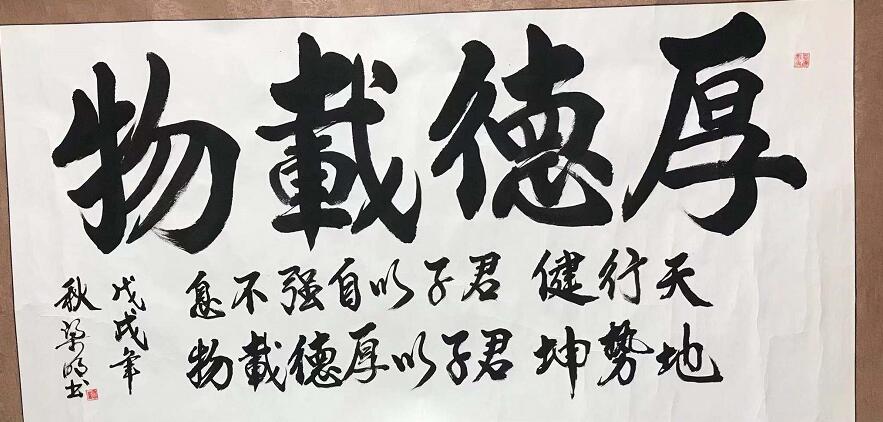 厚德載物
天行健君子以自强不息
地勢坤君子以厚德載物
戊戌年
秋梁明书